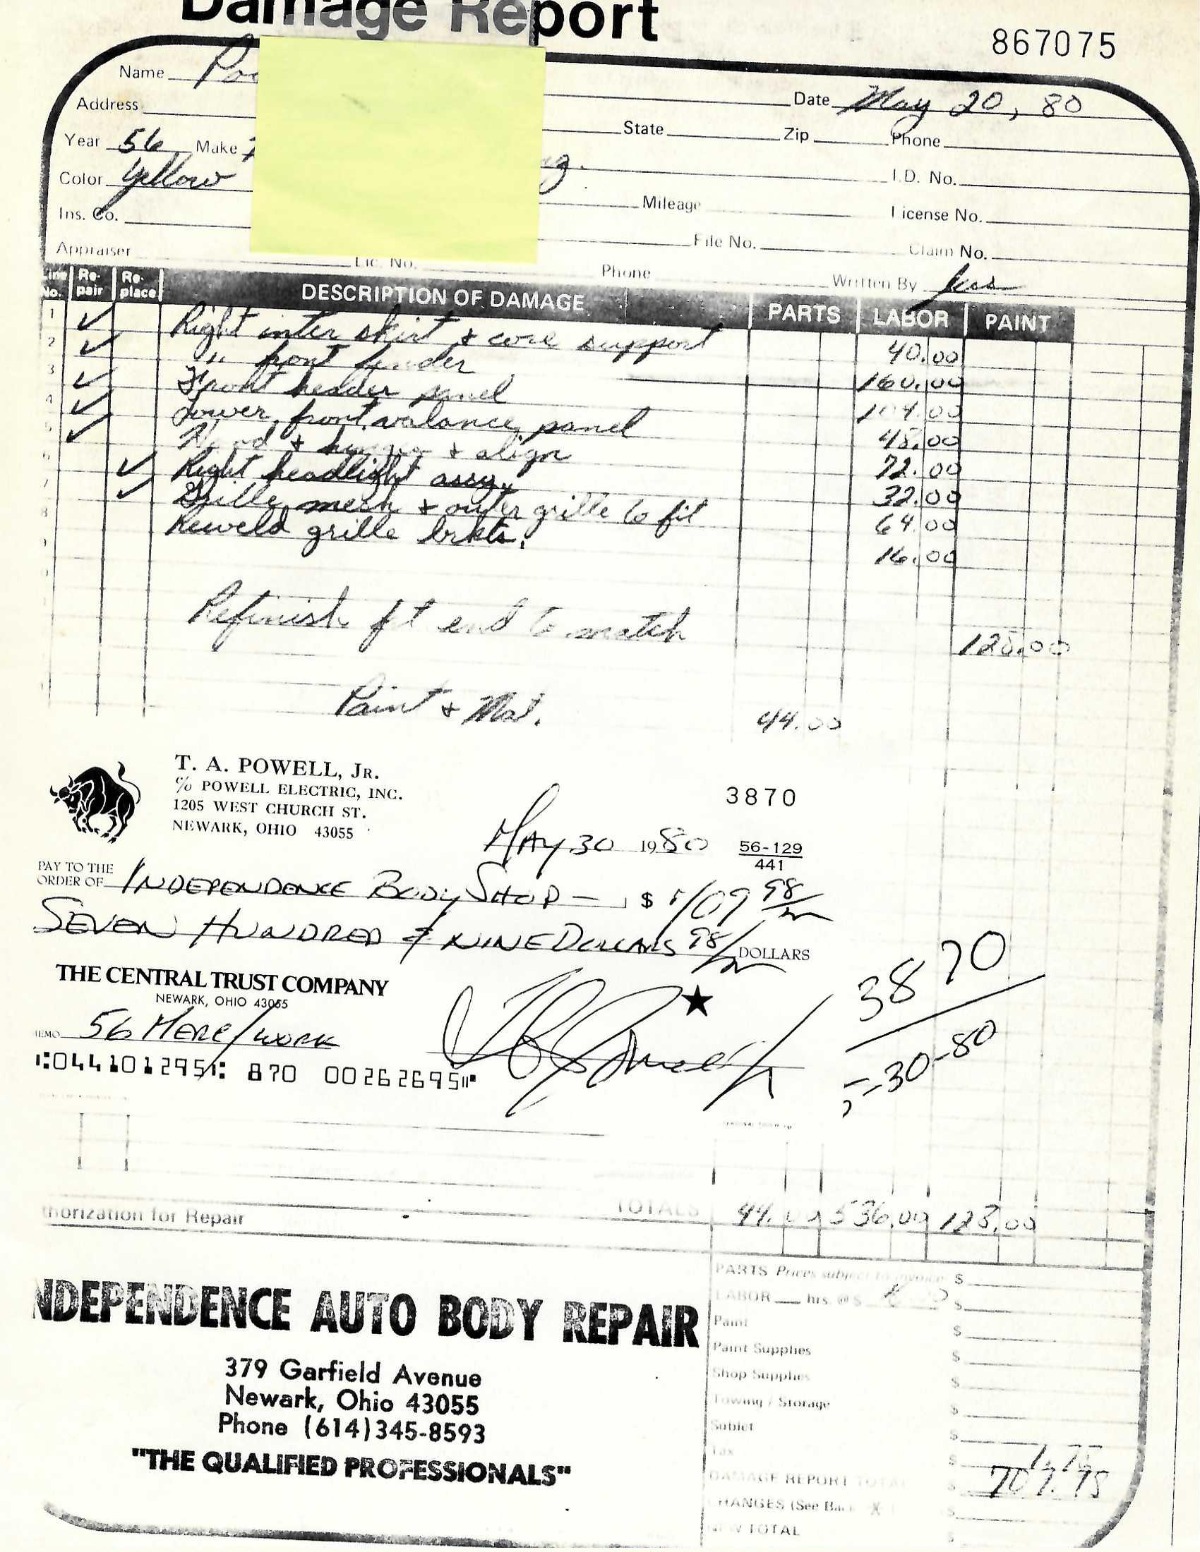 Damage Report
867075
Name
Date May 20, 80
Address
State Zip Phone
Year 56 Make
Color Yellow I.D. No.
Ins. Co. Mileage License No.
Appraiser Lic. No. File No. Claim No.
Phone Written By
Line No. Re-pair Re-place DESCRIPTION OF DAMAGE PARTS LABOR PAINT
1 Right inter skirt & core support 40.00
2 " front fender 160.00
3 Front header panel 104.00
4 Lower front valance panel 48.00
5 Hood & hinges & align 72.00
Right headlight assy. 32.00
7 Grille mesh & outer grille to fit 64.00
8 Reweld grille brkts. 16.00
9
Refinish frt end to match 128.00
Paint & Mat. 44.00
T. A. POWELL, JR.
% POWELL ELECTRIC, INC.
1205 WEST CHURCH ST.
NEWARK, OHIO 43055
3870
MAY 30 1980 56-129
441
PAY TO THE ORDER OF INDEPENDENCE BODY SHOP — $ 709 98/
SEVEN HUNDRED & NINE DOLLARS 98/ DOLLARS
THE CENTRAL TRUST COMPANY
NEWARK, OHIO 43055
3870
5-30-80
EMO 56 MERC/WORK
⑆044101295⑆ 870 00262695⑈
thorization for Repair TOTALS 44.00 536.00 128.00
PARTS Prices subject to invoice $
LABOR hrs. @ $ $
Paint $
Paint Supplies $
Shop Supplies $
Towing / Storage $
Sublet $
Tax $ 1.75
DAMAGE REPORT TOTAL $ 709.98
CHANGES (See Back) $
NEW TOTAL $
NDEPENDENCE AUTO BODY REPAIR
379 Garfield Avenue
Newark, Ohio 43055
Phone (614)345-8593
"THE QUALIFIED PROFESSIONALS"